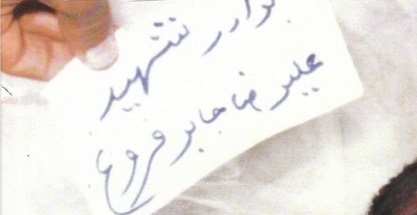 برادر شهید
علیرضا جابر فروغی